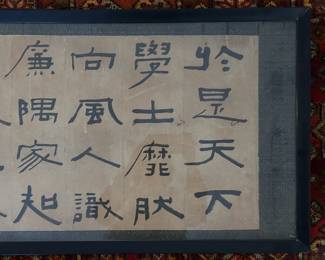 於是天下
學士靡肰
向風人識
廉隅家知